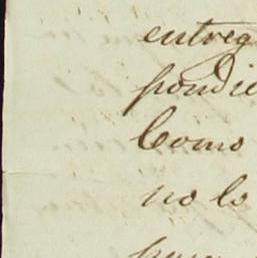 entreg
pondie
Como
no lo